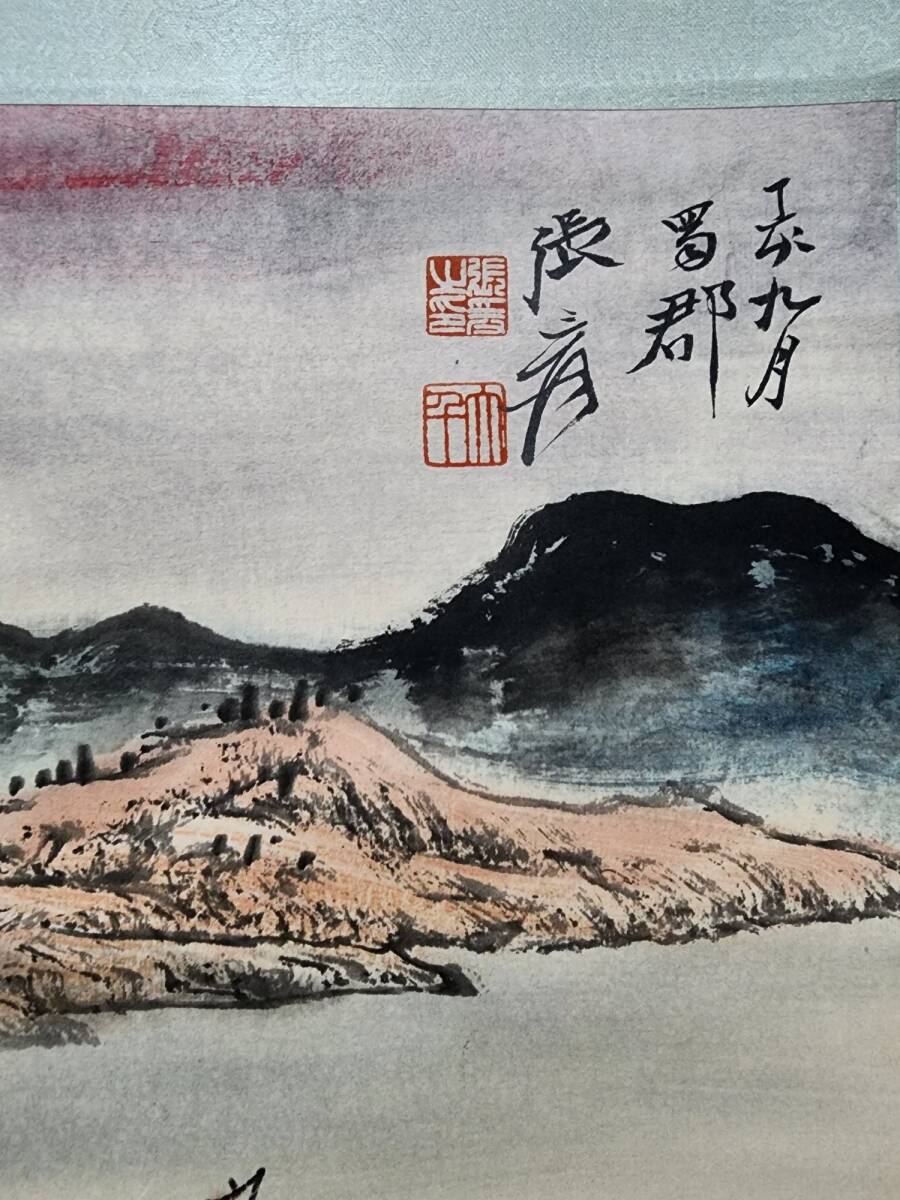 丁亥九月
蜀郡
張爰
張爰之印
大千